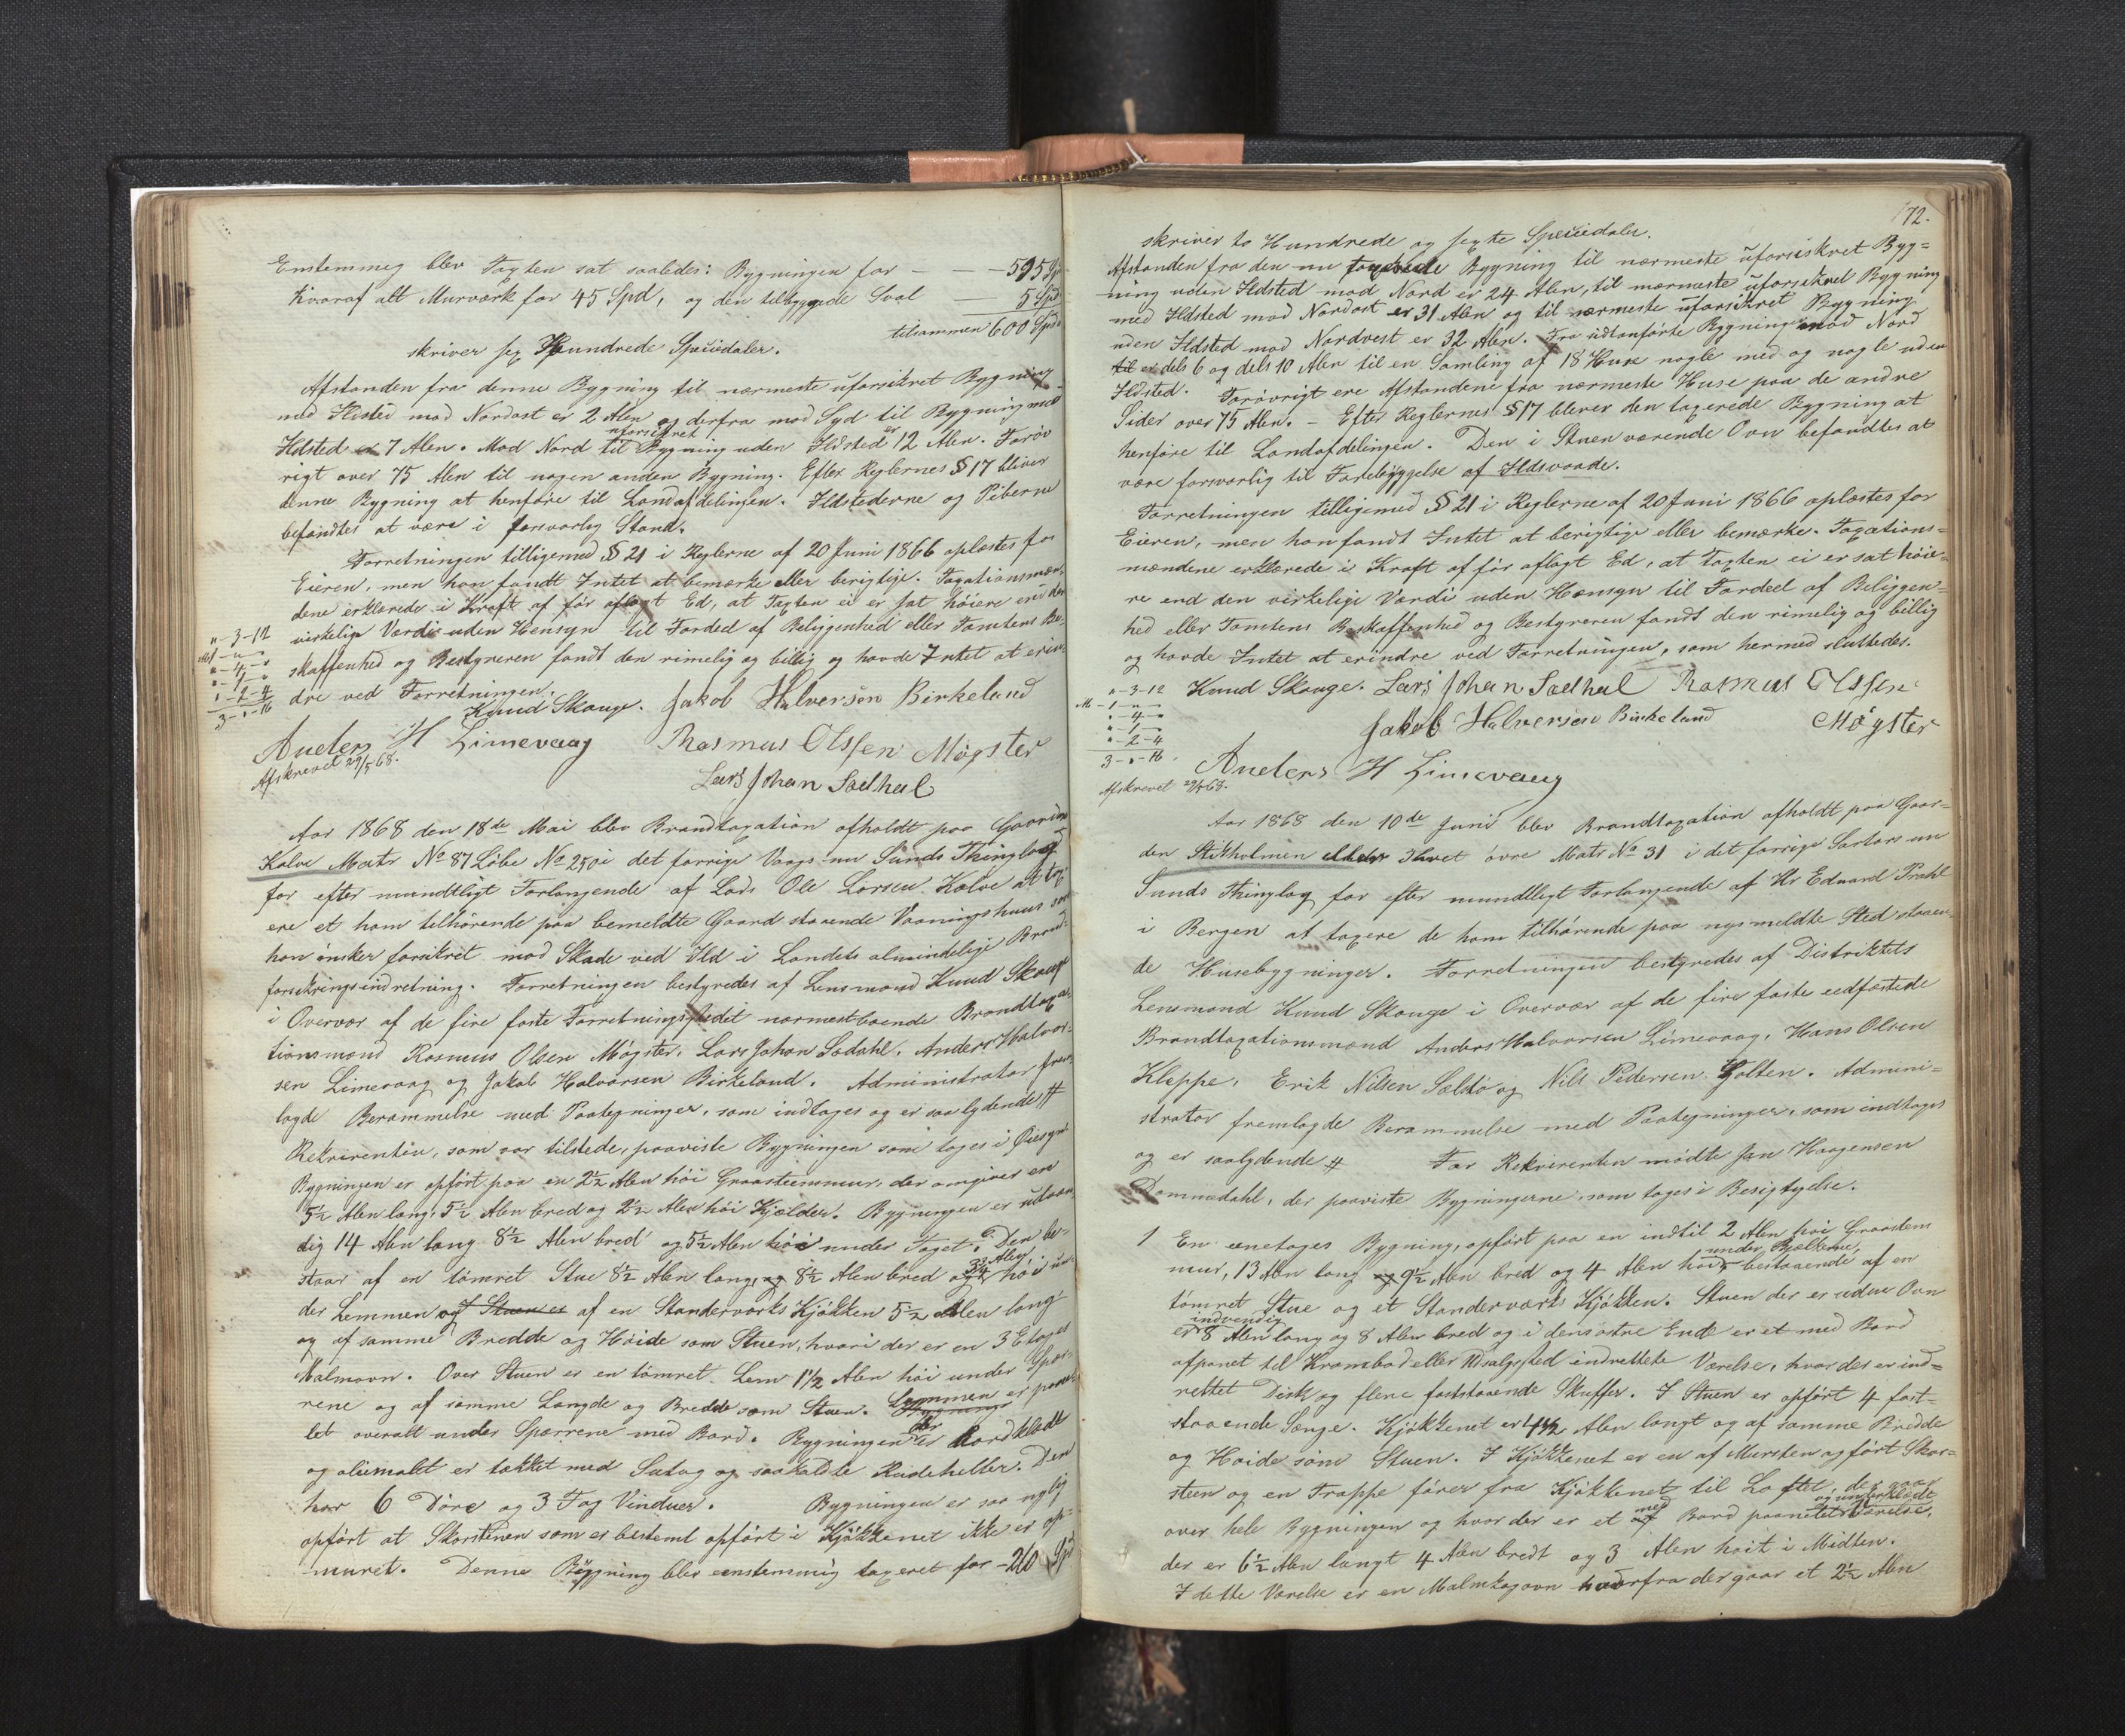 Enstemmig blev Taxten sat saaledes: Bygningen for – – – 595 Spd
hvoraf alt Murværk for 45 Spd, og den tilbyggede Sval — 5 Spd
tilsammen 600 Spd
skriver sex Hundrede Speciedaler.
Afstanden fra denne Bygning til nærmeste uforsikret Bygning
med Ildsted mod Nordost er 2 Alen og derfra mod Syd til Bygning med
Ildsted er 7 Alen. Mod Nord til uforsikret Bygning uden Ildsted er 12 Alen. Forøv
rigt over 75 Alen til nogen anden Bygning. Efter Reglernes § 17 bliver
denne Bygning at henføre til Landafdelingen. Ildstederne og Piberne
befandtes at være i forsvarlig Stand.
Forretningen tilligemed § 21 i Reglerne af 20 Juni 1866 oplæstes for
Eieren, men han fandt Intet at bemærke eller berigtige. Taxationsmæn-
dene erklærede i Kraft af før aflagt Ed, at Taxten ei er sat høiere end den
virkelige Værdi uden Hensyn til Fordeel af Beliggenhed eller Tomtens Be-
skaffenhed og Bestyreren fandt den rimelig og billig og havde Intet at erin-
dre ved Forretningen.
" - 3 - 12
" - 4 - "
" - 1 - "
" - 2 - 4
3 - " - 16
Knud Skauge. Jakob Halversen Birkeland
Anders H Limevaag Rasmus Olssen Møgster
Afskrevet 29/5 68.
Lars Johan Sædhal
Aar 1868 den 18de Mai blev Brandtaxation afholdt paa Gaarden
Kalve Matr No 87 Løbe No 250 i det forrige Vaags nu Sunds Thinglag
for efter mundtligt Forlangende af Lods Ole Larsen Kalve at tax
ere et ham tilhørende paa bemeldte Gaard staaende Vaaningshuus som
han ønsker forsikret mod Skade ved Ild i Landets almindelige Brand-
forsikringsindretning. Forretningen bestyredes af Lensmand Knud Skauge
i Overvær af de fire faste Forretningsstedet nærmestboende Brandtaxa-
tionsmænd Rasmus Olsen Møgster, Lars Johan Sædahl, Anders Halvor-
sen Limevaag og Jakob Halvorsen Birkeland. Administrator frem-
lagde Berammelse med Paategninger, som indtages og er saalydende #
Rekvirenten, som var tilstede, paaviste Bygningen som toges i Øiesyn.
Bygningen er opført paa en 2½ Alen høi Graasteensmuur, der omgiver en
5½ Alen lang, 5½ Alen bred og 2½ Alen høi Kjælder. Bygningen er udvæn-
dig 14 Alen lang 8½ Alen bred og 5½ Alen høi under Taget. Den be-
staar af en tømret Stue 8½ Alen lang, og 8½ Alen bred og 3¾ Alen høi un-
der Lemmen og I Stuen er af en Standerværks Kjøkken 5½ Alen lang
og af samme Bredde og Høide som Stuen, hvori der er en 3 Etages
Malmovn. Over Stuen er en tømret Lem 1½ Alen høi under Spær-
rene og af samme Længde og Bredde som Stuen. Bygnings Lemmen er pane-
let overalt under Spærrene med Bord. Bygningen der er bordklædt
og oliemalet er tækket med Sutag og saakaldte Rudeheller. Den
har 6 Døre og 3 Fag Vinduer. Bygningen er saa nylig
opført at Skorstenen som er bestemt opført i Kjøkkenet ikke er op-
muret. Denne Bygning blev eenstemmig taxeret for - 260 Spd
72.
skriver to Hundrede og sexte Speciedaler.
Afstanden fra den nu taxerede Bygning til nærmeste uforsikret Byg=
ning uden Ildsted mod Nord er 24 Alen, til nærmeste uforsikret Bygning
med Ildsted mod Nordost er 31 Alen og til nærmeste uforsikret Bygning
uden Ildsted mod Nordvest er 32 Alen. Fra sidtanførte Bygning mod Nord
til er dels 6 og dels 10 Alen til en Samling af 18 Huse nogle med og nogle uden
Ildsted. Forøvrigt ere Afstandene fra nærmeste Huse paa de andre
Sider over 75 Alen. – Efter Reglernes § 17 bliver den taxerede Bygning at
henføre til Landafdelingen. Den i Stuen værende Ovn befandtes at
være forsvarlig til Forebyggelse af Ildsvaade.
Forretningen tilligemed § 21 i Reglerne af 20 Juni 1866 oplæstes for
Eieren, men han fandt Intet at berigtige eller bemærke. Taxations=
mændene erklærede i Kraft af før aflagt Ed, at Taxten ei er sat høie=
re end den virkelige Værdi uden Hensyn til Fordeel af Beliggen=
hed eller Tomtens Beskaffenhed og Bestyreren fandt den rimelig og billig
og havde Intet at erindre ved Forretningen, som hermed sluttedes.
" - 3 - 12
" - 1 - "
" - 4 - "
" - 1 - "
" - 2 - 4
3 - " - 16
Knud Skauge. Lars Johan Sædhal Rasmus Olssen
Jakob Halversen Birkeland Møgster
Anders H Limevaag
Afskrevet 29/5 68.
Aar 1868 den 10de Juni blev Brandtaxation afholdt paa Gaar=
den Stikholmen eller Thvet øvre Matr No 31 i det forrige Sartors nu
Sunds Thinglag for efter mundtligt Forlangende af Hr Eduard Prahl
i Bergen at taxere de ham tilhørende paa nysmeldte Sted staaen
de Husebygninger. Forretningen bestyredes af Distriktets
Lensmand Knud Skauge i Overvær af de fire faste eedfæstede
Brandtaxationsmænd Anders Halvorsen Limevaag, Hans Olsen
Kleppe, Erik Nilsen Sældø og Nils Pedersen Golten. Admini=
strator fremlagde Berammelse med Paategninger, som indtages
og er saalydende # For Rekvirenten mødte Jan Haagensen
Dommedahl, der paaviste Bygningerne som toges i Besigtigelse.
1 En eenetages Bygning, opført paa en indtil 2 Alen høi Graastens
muur, 13 Alen lang og 9½ Alen bred og 4 Alen høi under Bjelkerne, bestaaende af en
tømret Stue og et Standerværks Kjøkken. Stuen der er uden Ovn
er indvendig 8 Alen lang og 8 Alen bred og i dens østre Ende er et med Bord
afpanet til Krambod eller Udsalgssted indrettete Værelse, hvor der er ind=
rettet Disk og flere faststaaende Skuffer. I Stuen er opført 4 fast=
staaende Senge. Kjøkkenet er 4½ Alen langt og af samme Bredde
og Høide som Stuen. I Kjøkkenet er en af Mursten opført Skor=
steen og en Trappe fører fra Kjøkkenet til Loftet, der gaar
over hele Bygningen og hvor der er et af med Bord paanelet og underklædt Værelse,
der er 6½ Alen langt 4 Alen bredt og 3 Alen høit i Midten.
I dette Værelse er en Malmkogovn hvorfra der gaar et 2½ Alen